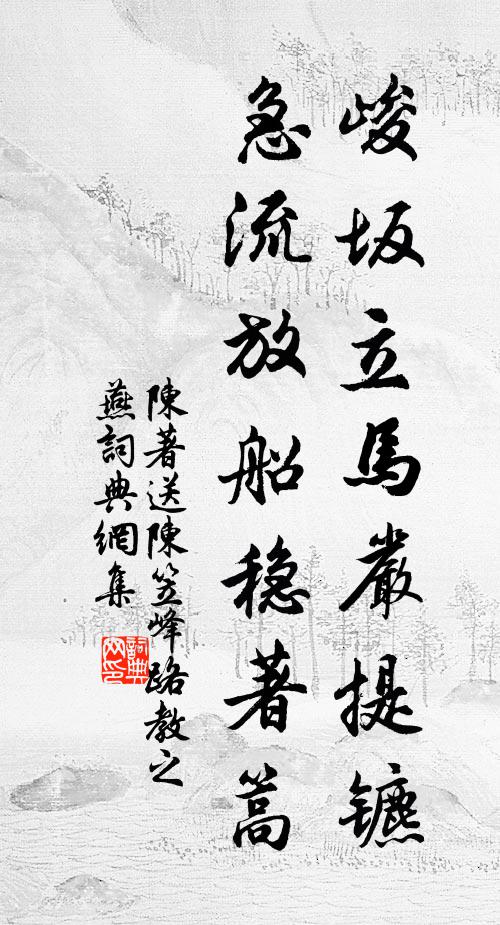 峻坂立馬嚴提鑣
急流放船穩著篙
陳著送陳笠峰路教之
燕詞典網集
詞典网印